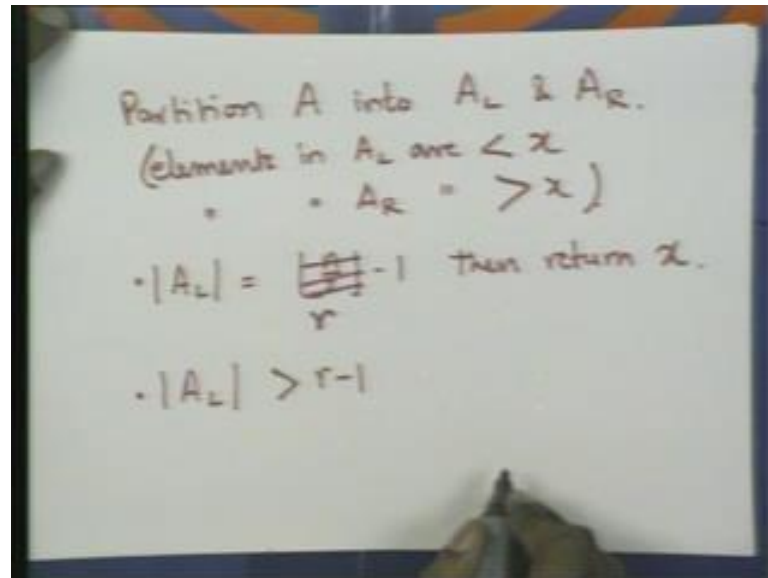 Partition A into A_L & A_R.
(elements in A_L are < x
" " A_R " > x)
• |A_L| = r - 1 then return x.
• |A_L| > r-1